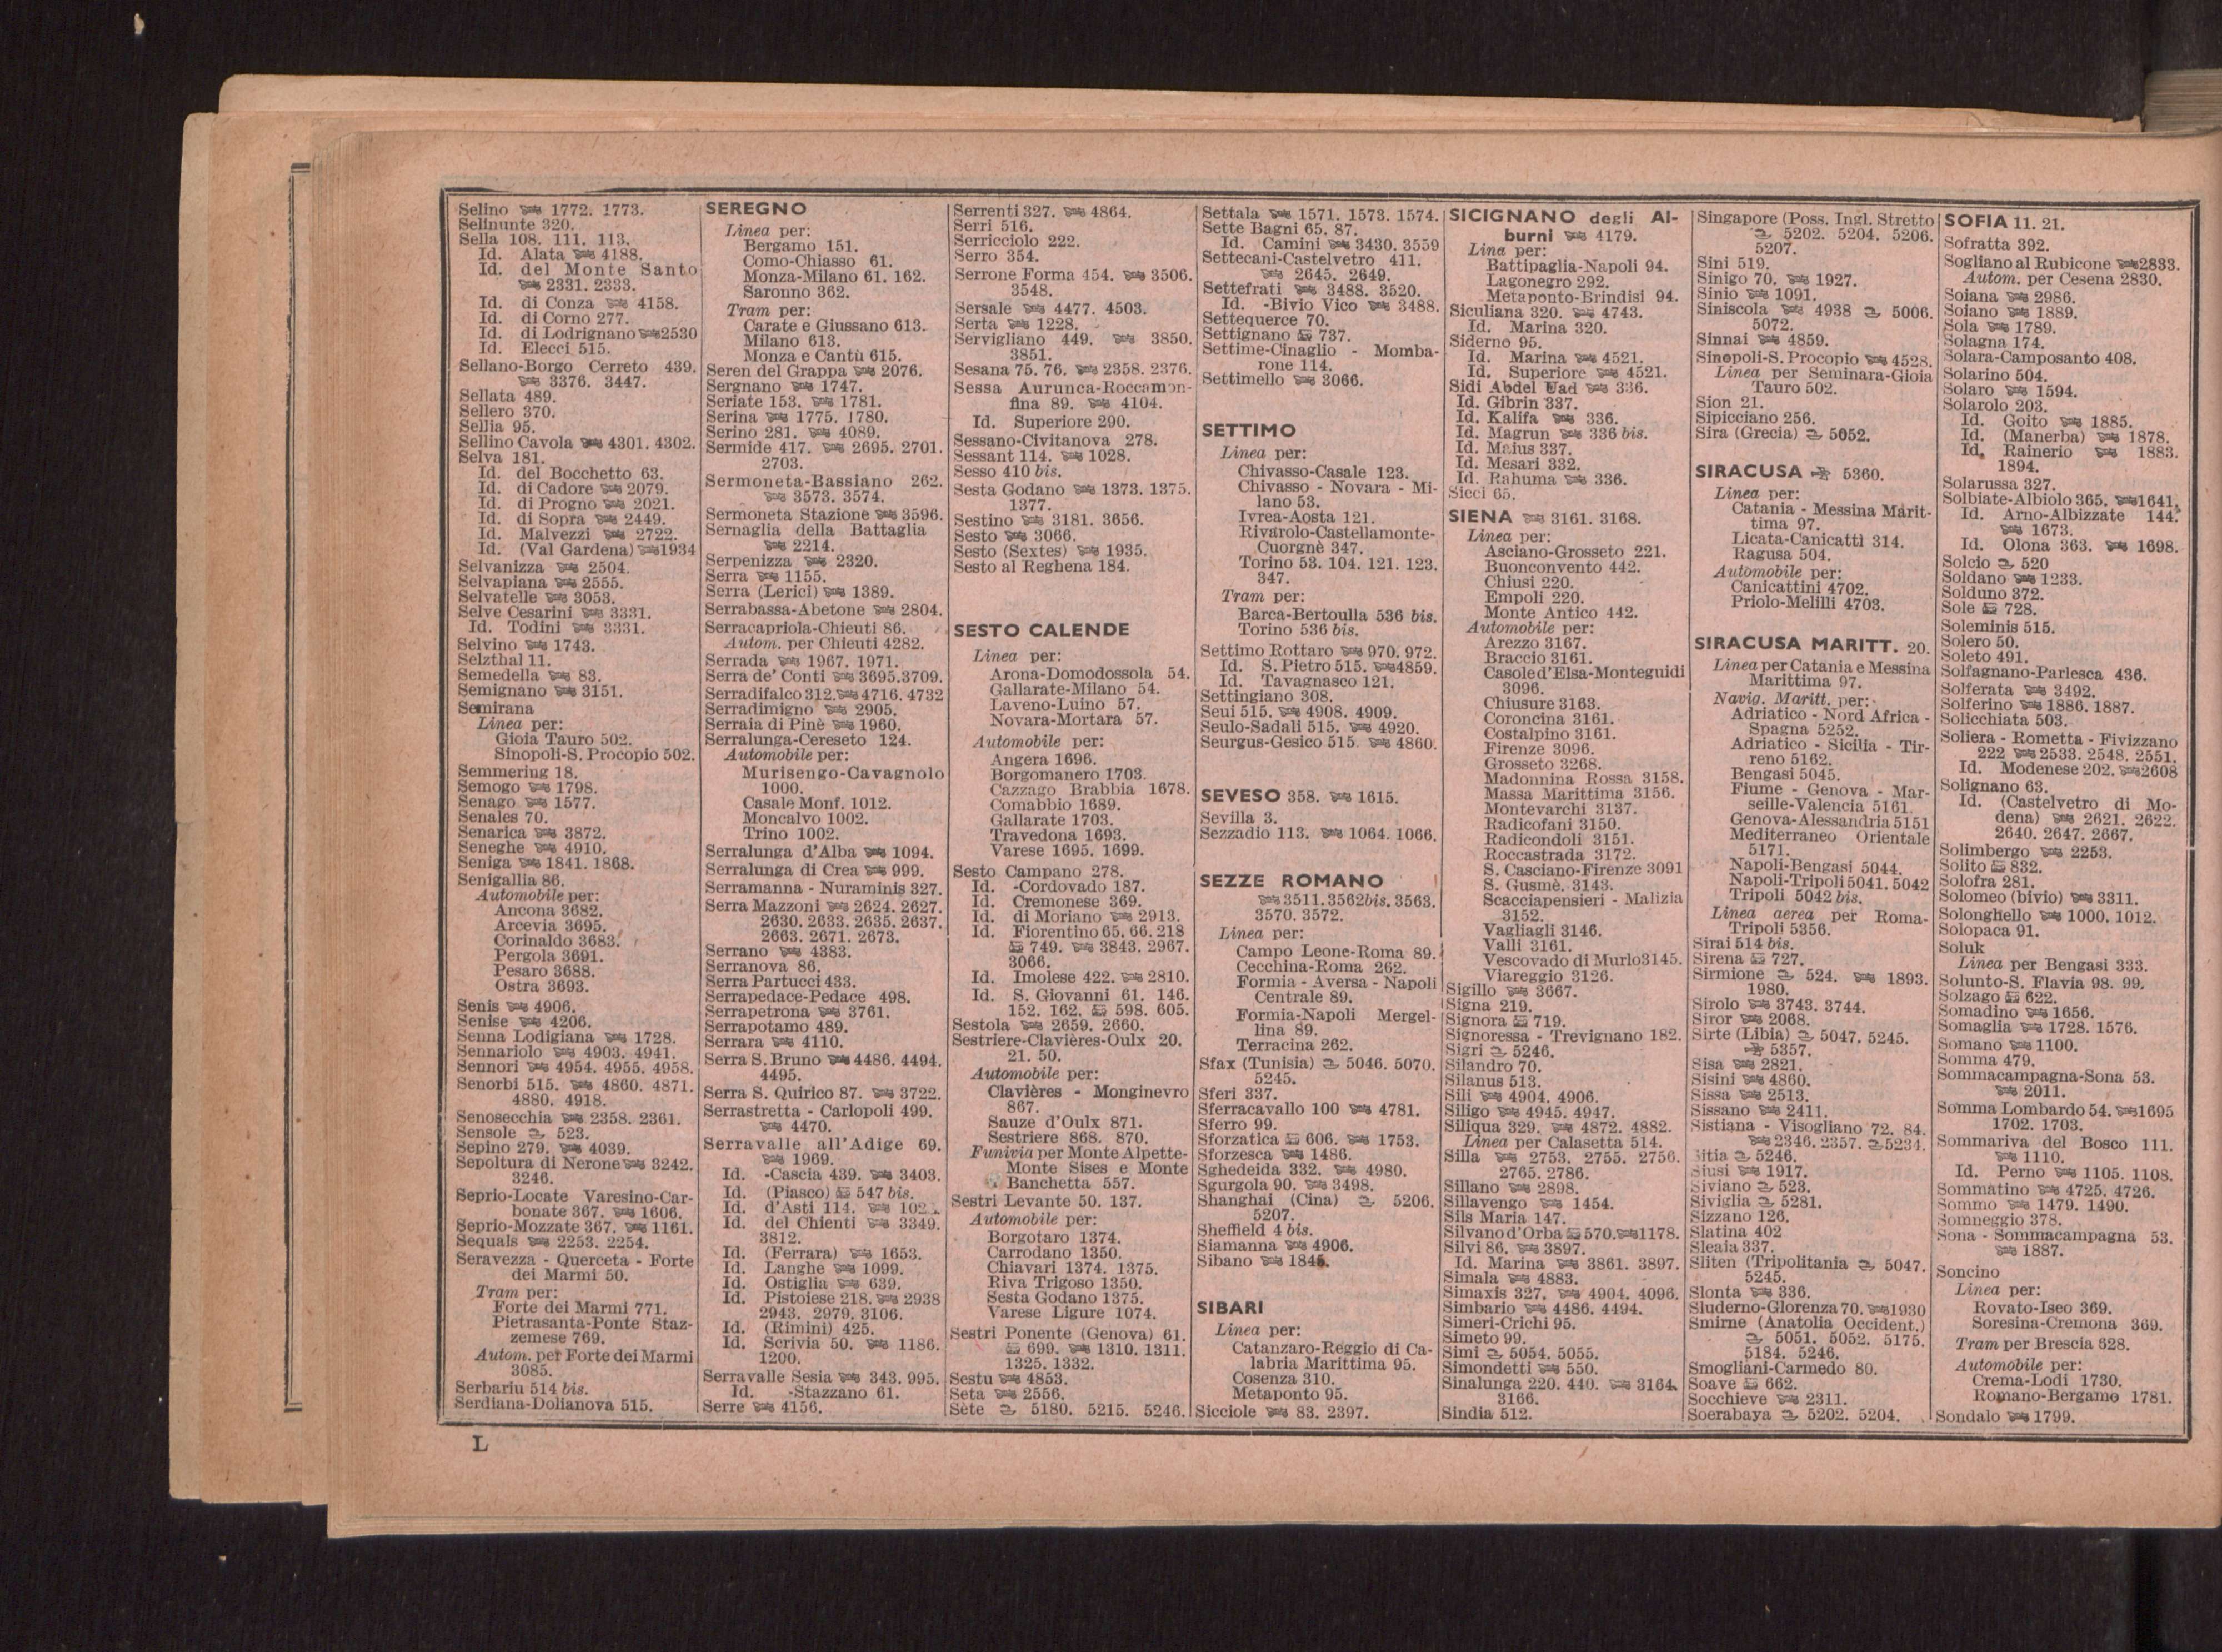 Selino 1772. 1773.
Selinunte 320.
Sella 108. 111. 113.
Id. Alata 4188.
Id. del Monte Santo
2331. 2333.
Id. di Conza 4158.
Id. di Corno 277.
Id. di Lodrignano 2530
Id. Elecci 515.
Sellano-Borgo Cerreto 439.
3376. 3447.
Sellata 489.
Sellero 370.
Sellia 95.
Sellino Cavola 4301. 4302.
Selva 181.
Id. del Bocchetto 63.
Id. di Cadore 2079.
Id. di Progno 2021.
Id. di Sopra 2449.
Id. Malvezzi 2722.
Id. (Val Gardena) 1934
Selvanizza 2504.
Selvapiana 2555.
Selvatelle 3053.
Selve Cesarini 3331.
Id. Todini 3331.
Selvino 1743.
Selzthal 11.
Semedella 83.
Semignano 3151.
Semirana
Linea per:
Gioia Tauro 502.
Sinopoli-S. Procopio 502.
Semmering 18.
Semogo 1798.
Senago 1577.
Senales 70.
Senarica 3872.
Seneghe 4910.
Seniga 1841. 1868.
Senigallia 86.
Automobile per:
Ancona 3682.
Arcevia 3695.
Corinaldo 3683.
Pergola 3691.
Pesaro 3688.
Ostra 3693.
Senis 4906.
Senise 4206.
Senna Lodigiana 1728.
Sennariolo 4903. 4941.
Sennori 4954. 4955. 4958.
Senorbi 515. 4860. 4871.
4880. 4918.
Senosecchia 2358. 2361.
Sensole 523.
Sepino 279. 4039.
Sepoltura di Nerone 3242.
3246.
Seprio-Locate Varesino-Car-
bonate 367. 1606.
Seprio-Mozzate 367. 1161.
Sequals 2253. 2254.
Seravezza - Querceta - Forte
dei Marmi 50.
Tram per:
Forte dei Marmi 771.
Pietrasanta-Ponte Staz-
zemese 769.
Autom. per Forte dei Marmi
3085.
Serbariu 514 bis.
Serdiana-Dolianova 515.
SEREGNO
Linea per:
Bergamo 151.
Como-Chiasso 61.
Monza-Milano 61. 162.
Saronno 362.
Tram per:
Carate e Giussano 613.
Milano 613.
Monza e Cantù 615.
Seren del Grappa 2076.
Sergnano 1747.
Seriate 153. 1781.
Serina 1775. 1780.
Serino 281. 4089.
Sermide 417. 2695. 2701.
2703.
Sermoneta-Bassiano 262.
3573. 3574.
Sermoneta Stazione 3596.
Sernaglia della Battaglia
2214.
Serpenizza 2320.
Serra 1155.
Serra (Lerici) 1389.
Serrabassa-Abetone 2804.
Serracapriola-Chieuti 86.
Autom. per Chieuti 4282.
Serrada 1967. 1971.
Serra de' Conti 3695.3709.
Serradifalco 312. 4716. 4732
Serradimigno 2905.
Serraia di Pinè 1960.
Serralunga-Cereseto 124.
Automobile per:
Murisengo-Cavagnolo
1000.
Casale Monf. 1012.
Moncalvo 1002.
Trino 1002.
Serralunga d'Alba 1094.
Serralunga di Crea 999.
Serramanna - Nuraminis 327.
Serra Mazzoni 2624. 2627.
2630. 2633. 2635. 2637.
2663. 2671. 2673.
Serrano 4383.
Serranova 86.
Serra Partucci 433.
Serrapedace-Pedace 498.
Serrapetrona 3761.
Serrapotamo 489.
Serrara 4110.
Serra S. Bruno 4486. 4494.
4495.
Serra S. Quirico 87. 3722.
Serrastretta - Carlopoli 499.
4470.
Serravalle all'Adige 69.
1969.
Id. -Cascia 439. 3403.
Id. (Piasco) 547 bis.
Id. d'Asti 114.
Id. del Chienti 3349.
3812.
Id. (Ferrara) 1653.
Id. Langhe 1099.
Id. Ostiglia 639.
Id. Pistoiese 218. 2938
2943. 2979. 3106.
Id. (Rimini) 425.
Id. Scrivia 50. 1186.
1200.
Serravalle Sesia 343. 995.
Id. -Stazzano 61.
Serre 4156.
Serrenti 327. 4864.
Serri 516.
Serricciolo 222.
Serro 354.
Serrone Forma 454. 3506.
3548.
Sersale 4477. 4503.
Serta 1228.
Servigliano 449. 3850.
3851.
Sesana 75. 76. 2358. 2376.
Sessa Aurunca-Roccamon-
fina 89. 4104.
Id. Superiore 290.
Sessano-Civitanova 278.
Sessant 114. 1028.
Sesso 410 bis.
Sesta Godano 1373. 1375.
1377.
Sestino 3181. 3656.
Sesto 3066.
Sesto (Sextes) 1935.
Sesto al Reghena 184.
SESTO CALENDE
Linea per:
Arona-Domodossola 54.
Gallarate-Milano 54.
Laveno-Luino 57.
Novara-Mortara 57.
Automobile per:
Angera 1696.
Borgomanero 1703.
Cazzago Brabbia 1678.
Comabbio 1689.
Gallarate 1703.
Travedona 1693.
Varese 1695. 1699.
Sesto Campano 278.
Id. -Cordovado 187.
Id. Cremonese 369.
Id. di Moriano 2913.
Id. Fiorentino 65. 66. 218
749. 3843. 2967.
3066.
Id. Imolese 422. 2810.
Id. S. Giovanni 61. 146.
152. 162. 598. 605.
Sestola 2659. 2660.
Sestriere-Clavières-Oulx 20.
21. 50.
Automobile per:
Clavières - Monginevro
867.
Sauze d'Oulx 871.
Sestriere 868. 870.
Funivia per Monte Alpette-
Monte Sises e Monte
Banchetta 557.
Sestri Levante 50. 137.
Automobile per:
Borgotaro 1374.
Carrodano 1350.
Chiavari 1374. 1375.
Riva Trigoso 1350.
Sesta Godano 1375.
Varese Ligure 1074.
Sestri Ponente (Genova) 61.
699. 1310. 1311.
1325. 1332.
Sestu 4853.
Seta 2556.
Sète 5180. 5215. 5246.
Settala 1571. 1573. 1574.
Sette Bagni 65. 87.
Id. Camini 3430. 3559
Settecani-Castelvetro 411.
2645. 2649.
Settefrati 3488. 3520.
Id. -Bivio Vico 3488.
Settequerce 70.
Settignano 737.
Settime-Cinaglio - Momba-
rone 114.
Settimello 3066.
SETTIMO
Linea per:
Chivasso-Casale 123.
Chivasso - Novara - Mi-
lano 53.
Ivrea-Aosta 121.
Rivarolo-Castellamonte-
Cuorgnè 347.
Torino 53. 104. 121. 123.
347.
Tram per:
Barca-Bertoulla 536 bis.
Torino 536 bis.
Settimo Rottaro 970. 972.
Id. S. Pietro 515. 4859.
Id. Tavagnasco 121.
Settingiano 308.
Seui 515. 4908. 4909.
Seulo-Sadali 515. 4920.
Seurgus-Gesico 515. 4860.
SEVESO 358. 1615.
Sevilla 3.
Sezzadio 113. 1064. 1066.
SEZZE ROMANO
3511.3562bis. 3563.
3570. 3572.
Linea per:
Campo Leone-Roma 89.
Cecchina-Roma 262.
Formia - Aversa - Napoli
Centrale 89.
Formia-Napoli Mergel-
lina 89.
Terracina 262.
Sfax (Tunisia) 5046. 5070.
5245.
Sferi 337.
Sferracavallo 100 4781.
Sferro 99.
Sforzatica 606. 1753.
Sforzesca 1486.
Sghedeida 332. 4980.
Sgurgola 90. 3498.
Shanghai (Cina) 5206.
5207.
Sheffield 4 bis.
Siamanna 4906.
Sibano
SIBARI
Linea per:
Catanzaro-Reggio di Ca-
labria Marittima 95.
Cosenza 310.
Metaponto 95.
Sicciole 83. 2397.
SICIGNANO degli Al-
burni 4179.
Lina per:
Battipaglia-Napoli 94.
Lagonegro 292.
Metaponto-Brindisi 94.
Siculiana 320. 4743.
Id. Marina 320.
Siderno 95.
Id. Marina 4521.
Id. Superiore 4521.
Sidi Abdel Uad 336.
Id. Gibrin 337.
Id. Kalifa 336.
Id. Magrun 336 bis.
Id. Maius 337.
Id. Mesari 332.
Id. Rahuma 336.
Sicci 65.
SIENA 3161. 3168.
Linea per:
Asciano-Grosseto 221.
Buonconvento 442.
Chiusi 220.
Empoli 220.
Monte Antico 442.
Automobile per:
Arezzo 3167.
Braccio 3161.
Casole d'Elsa-Monteguidi
3096.
Chiusure 3163.
Coroncina 3161.
Costalpino 3161.
Firenze 3096.
Grosseto 3268.
Madonnina Rossa 3158.
Massa Marittima 3156.
Montevarchi 3137.
Radicofani 3150.
Radicondoli 3151.
Roccastrada 3172.
S. Casciano-Firenze 3091
S. Gusmè. 3143.
Scacciapensieri - Malizia
3152.
Vagliagli 3146.
Valli 3161.
Vescovado di Murlo3145.
Viareggio 3126.
Sigillo 3667.
Signa 219.
Signora 719.
Signoressa - Trevignano 182.
Sigri 5246.
Silandro 70.
Silanus 513.
Sili 4904. 4906.
Siligo 4945. 4947.
Siliqua 329. 4872. 4882.
Linea per Calasetta 514.
Silla 2753. 2755. 2756.
2765. 2786.
Sillano 2898.
Sillavengo 1454.
Sils Maria 147.
Silvano d'Orba 570. 1178.
Silvi 86. 3897.
Id. Marina 3861. 3897.
Simala 4883.
Simaxis 327. 4904. 4096.
Simbario 4486. 4494.
Simeri-Crichi 95.
Simeto 99.
Simi 5054. 5055.
Simondetti 550.
Sinalunga 220. 440. 3164.
3166.
Sindia 512.
Singapore (Poss. Ingl. Stretto
5202. 5204. 5206.
5207.
Sini 519.
Sinigo 70. 1927.
Sinio 1091.
Siniscola 4938 5006.
5072.
Sinnai 4859.
Sinopoli-S. Procopio 4528.
Linea per Seminara-Gioia
Tauro 502.
Sion 21.
Sipicciano 256.
Sira (Grecia) 5052.
SIRACUSA 5360.
Linea per:
Catania - Messina Marit-
tima 97.
Licata-Canicatti 314.
Ragusa 504.
Automobile per:
Canicattini 4702.
Priolo-Melilli 4703.
SIRACUSA MARITT. 20.
Linea per Catania e Messina
Marittima 97.
Navig. Maritt. per:
Adriatico - Nord Africa -
Spagna 5252.
Adriatico - Sicilia - Tir-
reno 5162.
Bengasi 5045.
Fiume - Genova - Mar-
seille-Valencia 5161.
Genova-Alessandria 5151
Mediterraneo Orientale
5171.
Napoli-Bengasi 5044.
Napoli-Tripoli 5041. 5042
Tripoli 5042 bis.
Linea aerea per Roma-
Tripoli 5356.
Sirai 514 bis.
Sirena 727.
Sirmione 524. 1893.
1980.
Sirolo 3743. 3744.
Siror 2068.
Sirte (Libia) 5047. 5245.
5357.
Sisa 2821.
Sisini 4860.
Sissa 2513.
Sissano 2411.
Sistiana - Visogliano 72. 84.
2346. 2357. 5234.
Sitia 5246.
Siusi 1917.
Siviano 523.
Siviglia 5281.
Sizzano 126.
Slatina 402
Sleaia 337.
Sliten (Tripolitania 5047.
5245.
Slonta 336.
Sluderno-Glorenza 70. 1930
Smirne (Anatolia Occident.)
5051. 5052. 5175.
5184. 5246.
Smogliani-Carmedo 80.
Soave 662.
Socchieve 2311.
Soerabaya 5202. 5204.
SOFIA 11. 21.
Sofratta 392.
Sogliano al Rubicone 2833.
Autom. per Cesena 2830.
Soiana 2986.
Soiano 1889.
Sola 1789.
Solagna 174.
Solara-Camposanto 408.
Solarino 504.
Solaro 1594.
Solarolo 203.
Id. Goito 1885.
Id. (Manerba) 1878.
Id. Rainerio 1883.
1894.
Solarussa 327.
Solbiate-Albiolo 365. 1641.
Id. Arno-Albizzate 144.
1673.
Id. Olona 363. 1698.
Solcio 520
Soldano 1233.
Solduno 372.
Sole 728.
Soleminis 515.
Solero 50.
Soleto 491.
Solfagnano-Parlesca 436.
Solferata 3492.
Solferino 1886. 1887.
Solicchiata 503.
Soliera - Rometta - Fivizzano
222 2533. 2548. 2551.
Id. Modenese 202. 2608
Solignano 63.
Id. (Castelvetro di Mo-
dena) 2621. 2622.
2640. 2647. 2667.
Solimbergo 2253.
Solito 832.
Solofra 281.
Solomeo (bivio) 3311.
Solonghello 1000. 1012.
Solopaca 91.
Soluk
Linea per Bengasi 333.
Solunto-S. Flavia 98. 99.
Solzago 622.
Somadino 1656.
Somaglia 1728. 1576.
Somano 1100.
Somma 479.
Sommacampagna-Sona 53.
2011.
Somma Lombardo 54. 1695
1702. 1703.
Sommariva del Bosco 111.
1110.
Id. Perno 1105. 1108.
Sommatino 4725. 4726.
Sommo 1479. 1490.
Somneggio 378.
Sona - Sommacampagna 53.
1887.
Soncino
Linea per:
Rovato-Iseo 369.
Soresina-Cremona 369.
Tram per Brescia 628.
Automobile per:
Crema-Lodi 1730.
Romano-Bergamo 1781.
Sondalo 1799.
L